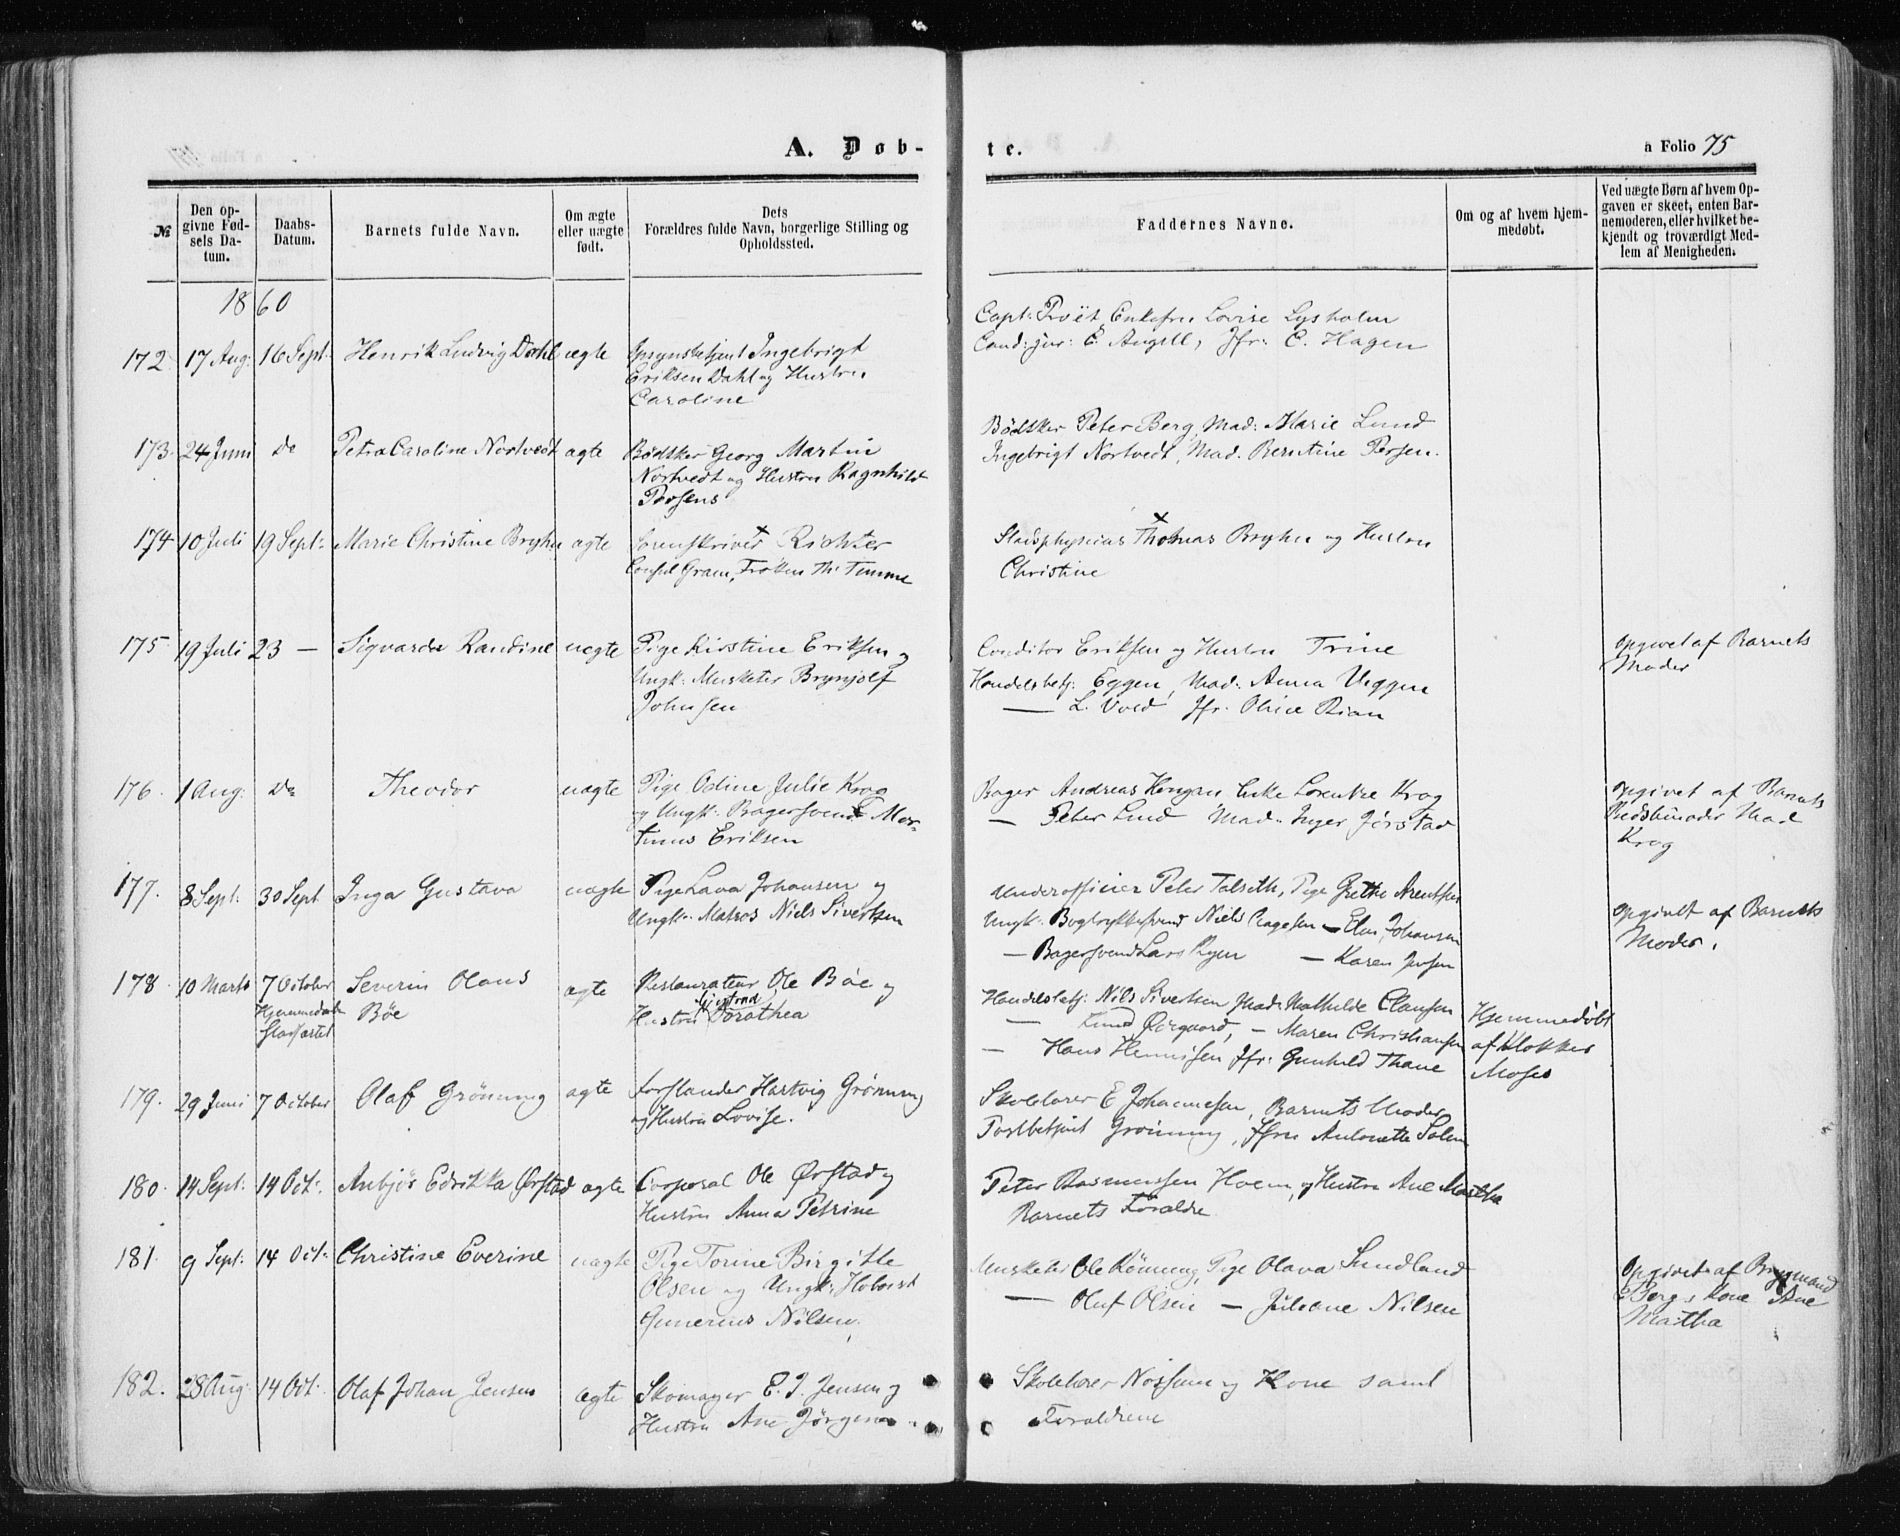 A. Døb-
te.
a Folio 75
№
Den op-
givne Fød-
sels Da-
tum.
Daabs-
Datum.
Barnets fulde Navn.
Om ægte
eller uægte
født.
Dets
Forældres fulde Navn, borgerlige Stilling og
Opholdssted.
Faddernes Navne.
Om og af hvem hjem-
medøbt.
Ved uægte Børn af hvem Op-
gaven er skeet, enten Bar-
nemoderen, eller hvilket be-
kjendt og troværdigt Med-
lem af Menigheden.
1860
172. 17 Aug: 16 Sept. Henrik Ludvig Dahl ægte Opsynsbetjent Ingebrigt
Eriksen Dahl og Hustru
Caroline
Capt: Enkefru Lovise Lysholm
Cand: jur: E. Angell, Jfr: C. Hagen
173. 24 Juni Do Petra Caroline Nortvedt ægte Bødker Georg Martin
Nortvedt og Hustru Ragnhild
Persens
Bødker Peter Berg, Mad: Marie Lund
Ingebrigt Nortvedt, Mad. Berntine Persen.
174 10 Juli 19 Sept: Marie Christine Bryhn ægte Sorenskriver Richter
Consul Gram, Frøken Th: Timme
Stadsphysicus Thomas Bryhn og Hustru
Christine
175 19 Juli 23 — Sigvarda Randine uægte Pige Kirstine Eriksen og
Ungk: Musketer Brynjolf
Johnsen
Conditor Eriksen og Hustru Trine
Handelsbetj: Eggen, Mad: Anna Veggen
— L. Vold Jfr. Oline Rian
opgivet af Barnets
Moder
176. 1 Aug: Do Theodor uægte Pige Odine Julie Krog
og Ungk: Bagersvend Mar-
tinus Eriksen
Bager Andreas Enke Lorentze Krog
— Peter Lund Mad: Inger Jørstad
opgivet af Barnets
Bedstemoder Mad
Krog
177. 8 Sept: 30 Sept Inga Gustava uægte Pige Lava Johansen og
Ungk: Matros Niels Sivertsen
Underofficier Peter Talseth, Pige Grethe Arentsen
Ungk: Bogtrykkersvend Niels — Elen Johansen
— Bagersvend Lars Ryen — Karen Jensen
opgivet af Barnets
Moder.
178 10 Marts 7 October Severin Olaus ægte Restaurateur Ole Bøe og
Hjemmedøb
Bøe
Hustru Dorathea
Handelsbetj: Nils Sivertsen Mad: Mathilde Clausen
— Knud — Maren Christiansen
— Hans Hennissen Jfr: Gunhild Thane
Hjemmedøbt
af Klokker
Moses
179. 29 Juni 7 October Olaf Grönning ægte Forstander Hartvig Grönning
og Hustru Lovise.
Skolelærer E Johannesen, Barnets Moder
Postbetjent Grönning, Jfru Antonette Solem
180. 14 Sept: 14 Oct: Anbjør Edrikka Ørstad ægte Corporal Ole Ørstad og
Hustru Anna Petrine
Peter Rasmussen Hoem, og Hustru Ane Martha
Barnets Forældre
181. 9 Sept: 14 Oct: Christine Everine uægte Pige Torine Birgitte
Olsen og Ungk: Hoboist
Gunerius Nilsen.
Musketer Ole Rönning, Pige Olava Sundland
— Oluf Olsen — Juliane Nilsen
Opgivet af
Bergs Kone Ane
Martha
182. 28 Aug: 14 Oct: Olaf Johan Jensen ægte Skomager E. J. Jensen og
Hustru Ane Jørgine
Skolelærer og Kone samt
Forældrene